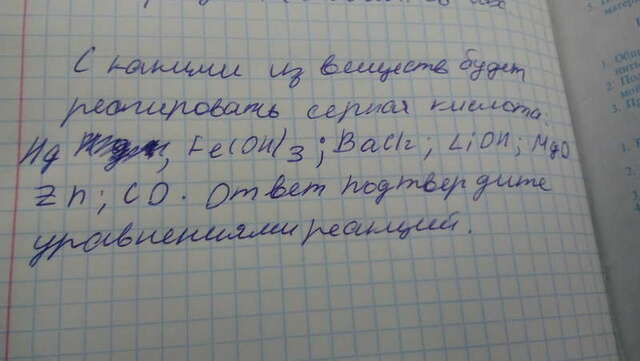 С какими из веществ будет
реагировать серная кислота:
Hg, Fe(OH)3; BaCl2; LiOH; MgO
Zn; CO. Ответ подтвердите
уравнениями реакций.